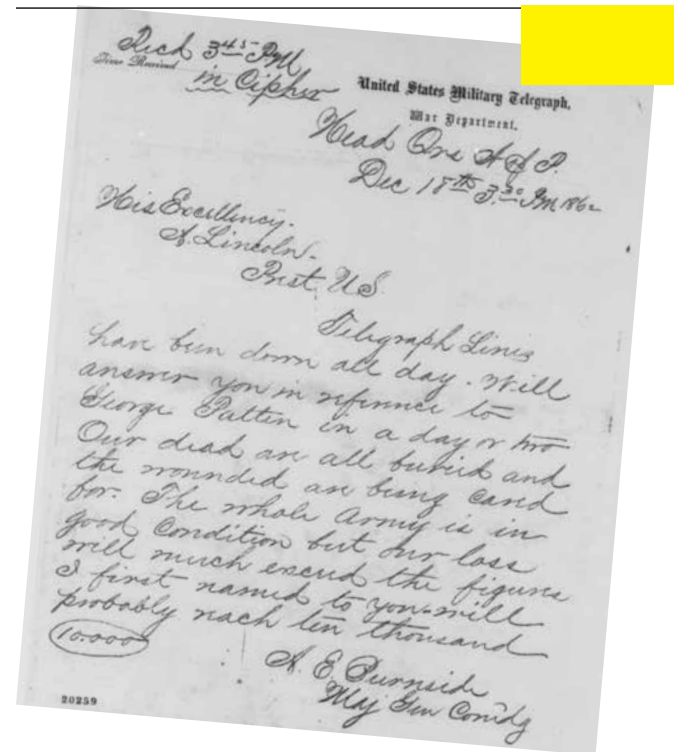 Recd 3 45 PM
Time Received
in Cipher
United States Military Telegraph,
War Department.
Head Qrs A of P.
Dec 18th 3.30 PM 1862
His Excellency.
A. Lincoln.
Prest U S
Telegraph Lines
have been down all day. Will
answer you in reference to
George Patten in a day or two
Our dead are all buried and
the wounded are being cared
for. The whole Army is in
good condition but our loss
will much exceed the figures
I first named to you - will
probably reach ten thousand
10.000
A. E. Burnside
Maj Gen Comdg
20259